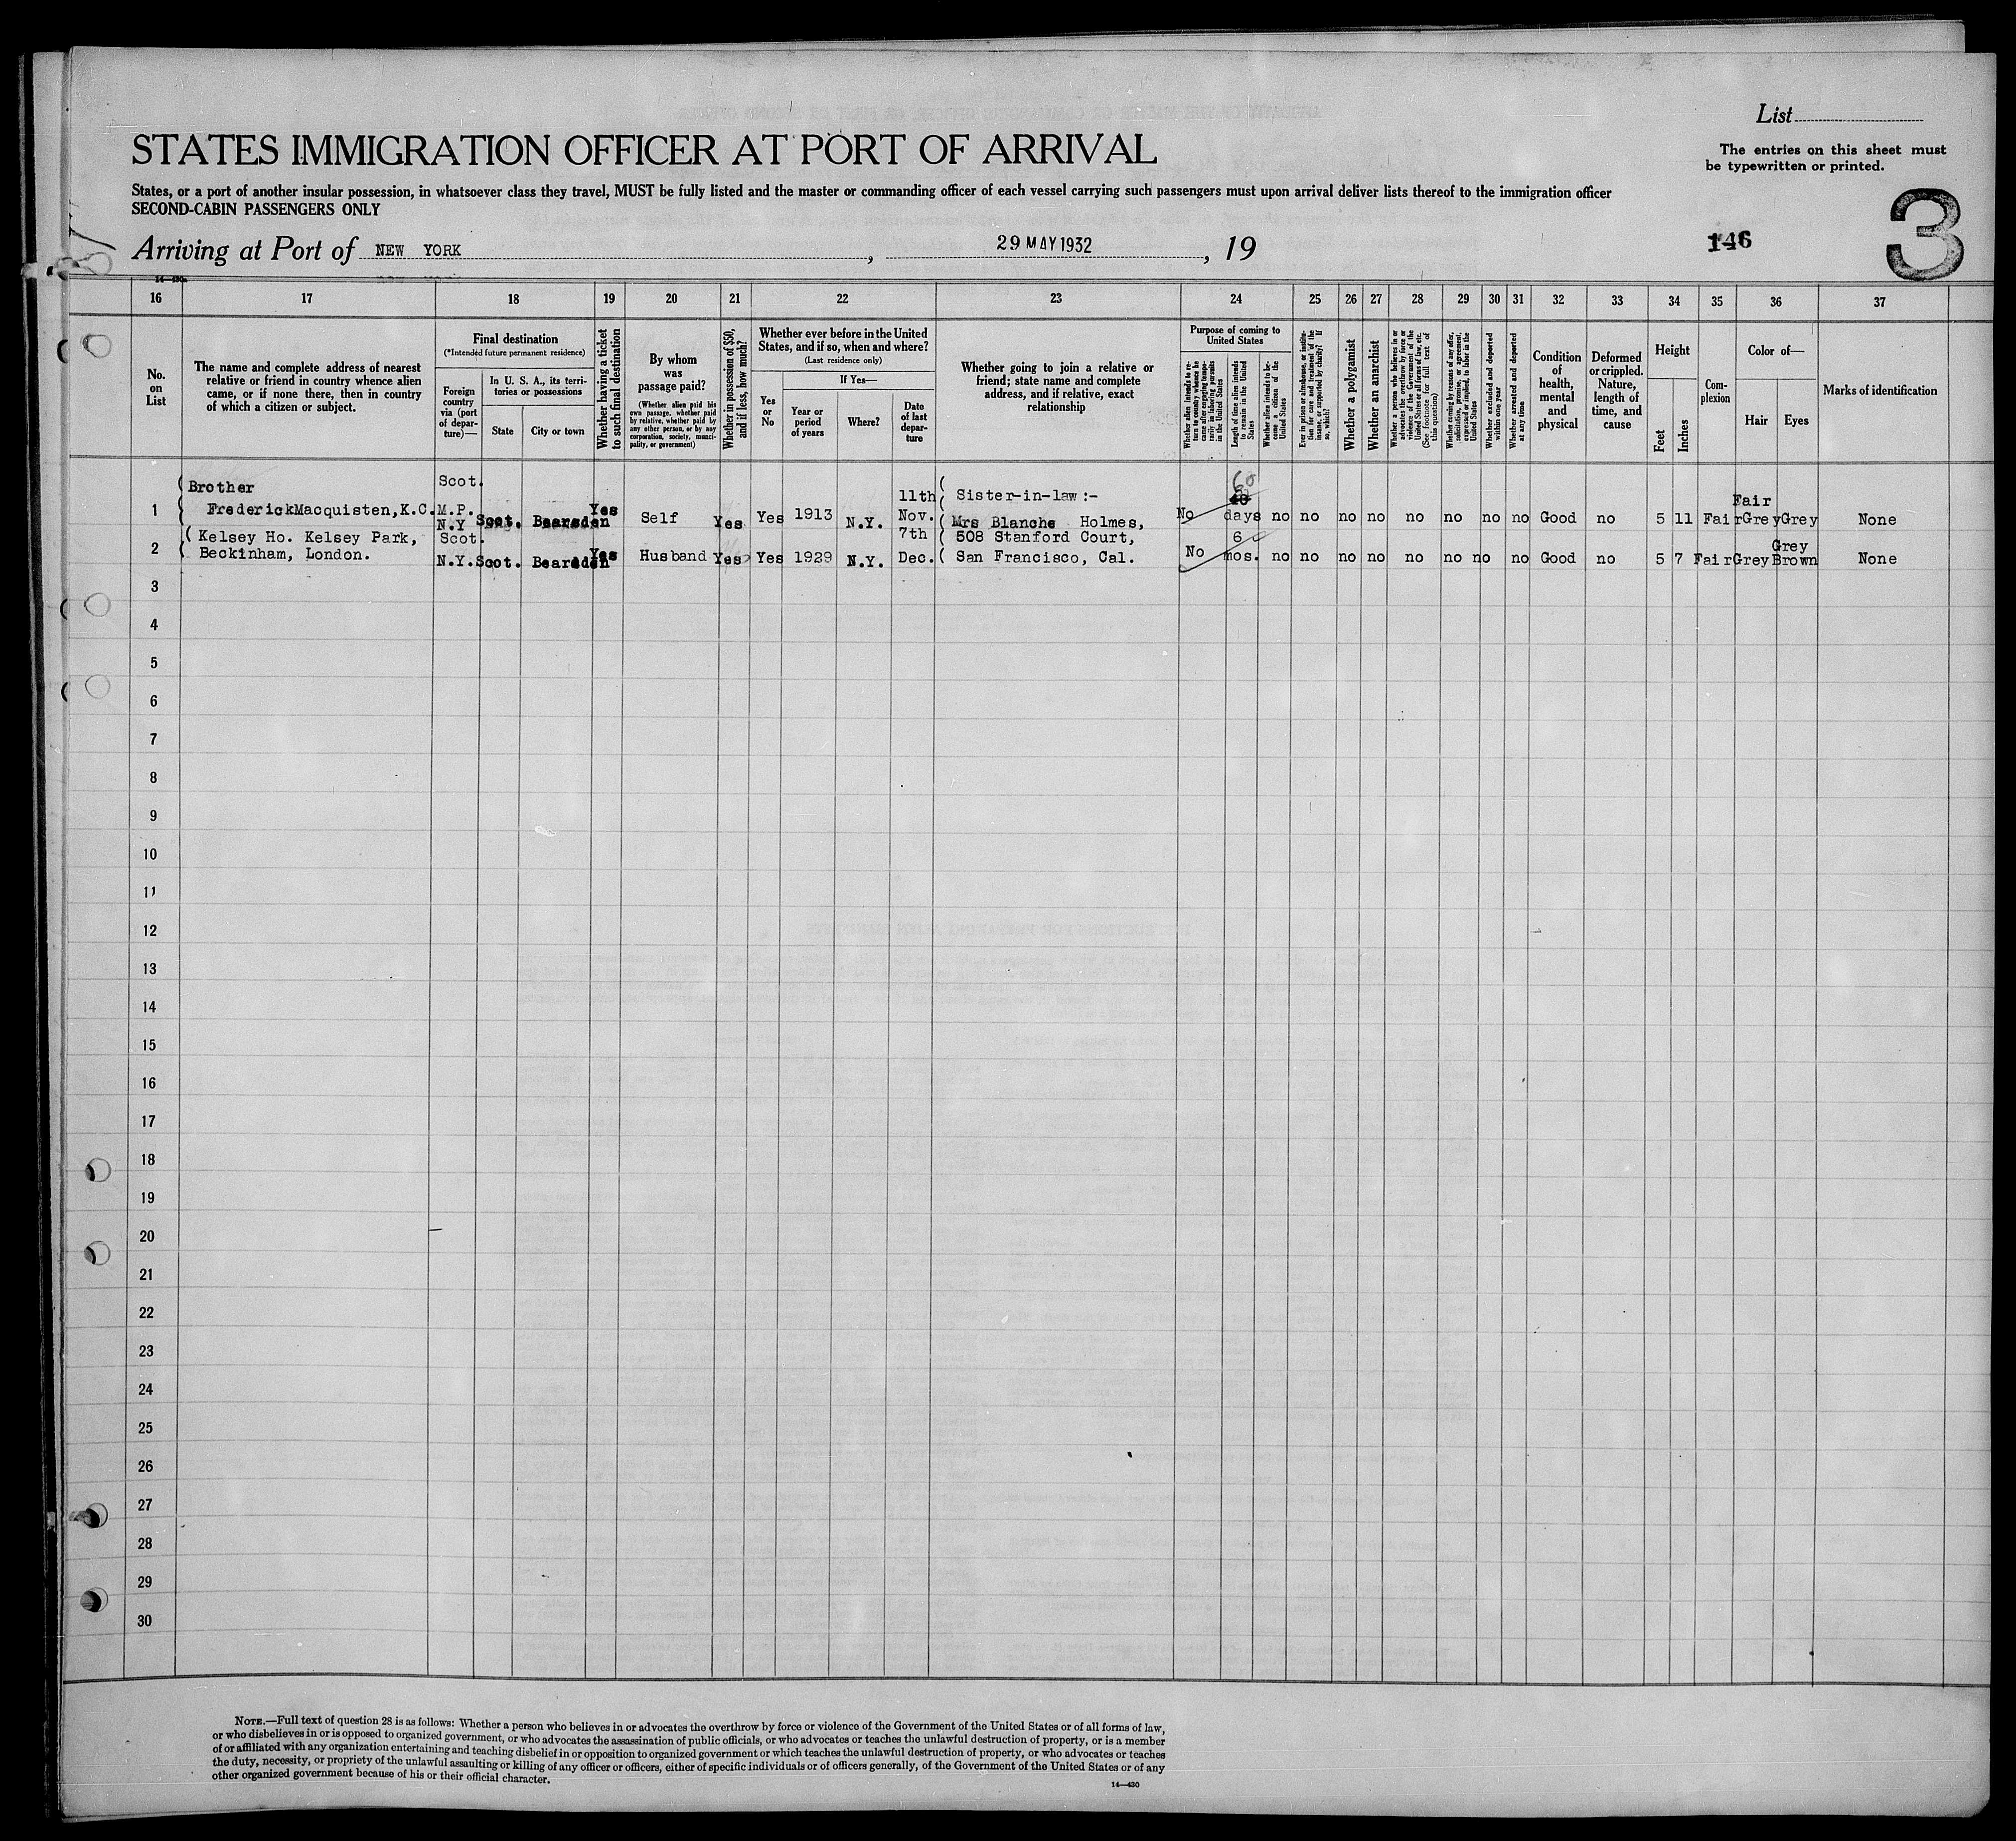 List
STATES IMMIGRATION OFFICER AT PORT OF ARRIVAL
The entries on this sheet must
be typewritten or printed.
States, or a port of another insular possession, in whatsoever class they travel, MUST be fully listed and the master or commanding officer of each vessel carrying such passengers must upon arrival deliver lists thereof to the immigration officer
SECOND-CABIN PASSENGERS ONLY
3
Arriving at Port of NEW YORK, 29 MAY 1932, 19
146
16 17 18 19 20 21 22 23 24 25 26 27 28 29 30 31 32 33 34 35 36 37
No.
on
List
The name and complete address of nearest
relative or friend in country whence alien
came, or if none there, then in country
of which a citizen or subject.
Final destination
(*Intended future permanent residence)
Foreign
country
via (port
of depar-
ture)—
In U. S. A., its terri-
tories or possessions
State
City or town
Whether having a ticket
to such final destination
By whom
was
passage paid?
(Whether alien paid his
own passage, whether paid
by relative, whether paid by
any other person, or by any
corporation, society, munici-
pality, or government)
Whether in possession of $50,
and if less, how much?
Whether ever before in the United
States, and if so, when and where?
(Last residence only)
Yes
or
No
If Yes—
Year or
period
of years
Where?
Date
of last
depar-
ture
Whether going to join a relative or
friend; state name and complete
address, and if relative, exact
relationship
Purpose of coming to
United States
Whether alien intends to re-
turn to country whence he
came after engaging tempo-
rarily in laboring pursuits
in the United States
Length of time alien intends
to remain in the United
States
Whether alien intends to be-
come a citizen of the
United States
Ever in prison or almshouse, or institu-
tion for care and treatment of the
insane, or supported by charity? If
so, which?
Whether a polygamist
Whether an anarchist
Whether a person who believes in or
advocates the overthrow by force or
violence of the Government of the
United States or all forms of law, etc.
(See footnote for full text of
this question)
Whether coming by reasons of any offer,
solicitation, promise, or agreement,
expressed or implied, to labor in the
United States
Whether excluded and deported
within one year
Whether arrested and deported
at any time
Condition
of
health,
mental
and
physical
Deformed
or crippled.
Nature,
length of
time, and
cause
Height
Feet
Inches
Com-
plexion
Color of—
Hair
Eyes
Marks of identification
Brother Scot. 11th ( Sister-in-law:- 60 Fair
1 Frederick Macquisten, K.C. M.P. N.Y Scot. Bearsden Yes Self Yes Yes 1913 N.Y. Nov. ( Mrs Blanche Holmes, No days no no no no no no no no Good no 5 11 Fair Grey Grey None
( Kelsey Ho. Kelsey Park, Scot. 7th ( 508 Stanford Court, 6 Grey
2 ( Beckinham, London. N.Y. Scot. Bearsden Yes Husband Yes Yes 1929 N.Y. Dec. ( San Francisco, Cal. No mos. no no no no no no no no Good no 5 7 Fair Grey Brown None
3
4
5
6
7
8
9
10
11
12
13
14
15
16
17
18
19
20
21
22
23
24
25
26
27
28
29
30
NOTE.—Full text of question 28 is as follows: Whether a person who believes in or advocates the overthrow by force or violence of the Government of the United States or of all forms of law,
or who disbelieves in or is opposed to organized government, or who advocates the assassination of public officials, or who advocates or teaches the unlawful destruction of property, or is a member
of or affiliated with any organization entertaining and teaching disbelief in or opposition to organized government or which teaches the unlawful destruction of property, or who advocates or teaches
the duty, necessity, or propriety of the unlawful assaulting or killing of any officer or officers, either of specific individuals or of officers generally, of the Government of the United States or of any
other organized government because of his or their official character.
14—430